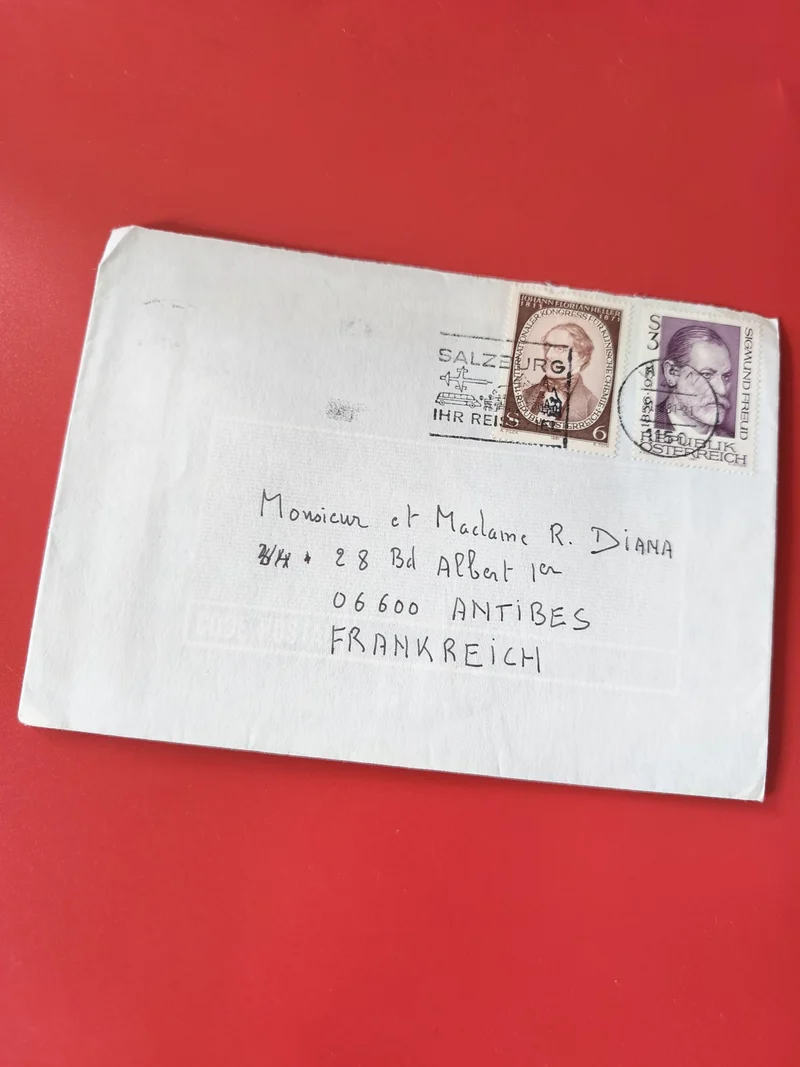 JOHANN FLORIAN HELLER
1813 1871
INTERNATIONALER KONGRESS FÜR KLINISCHE CHEMIE
REPUBLIK ÖSTERREICH
S 6
S
3
SIGMUND FREUD
1856-
REPUBLIK
ÖSTERREICH
1150
SALZBURG
IHR
Monsieur et Madame R. DiANA
28 Bd Albert 1er
06600 ANTiBES
FRANKREiCH